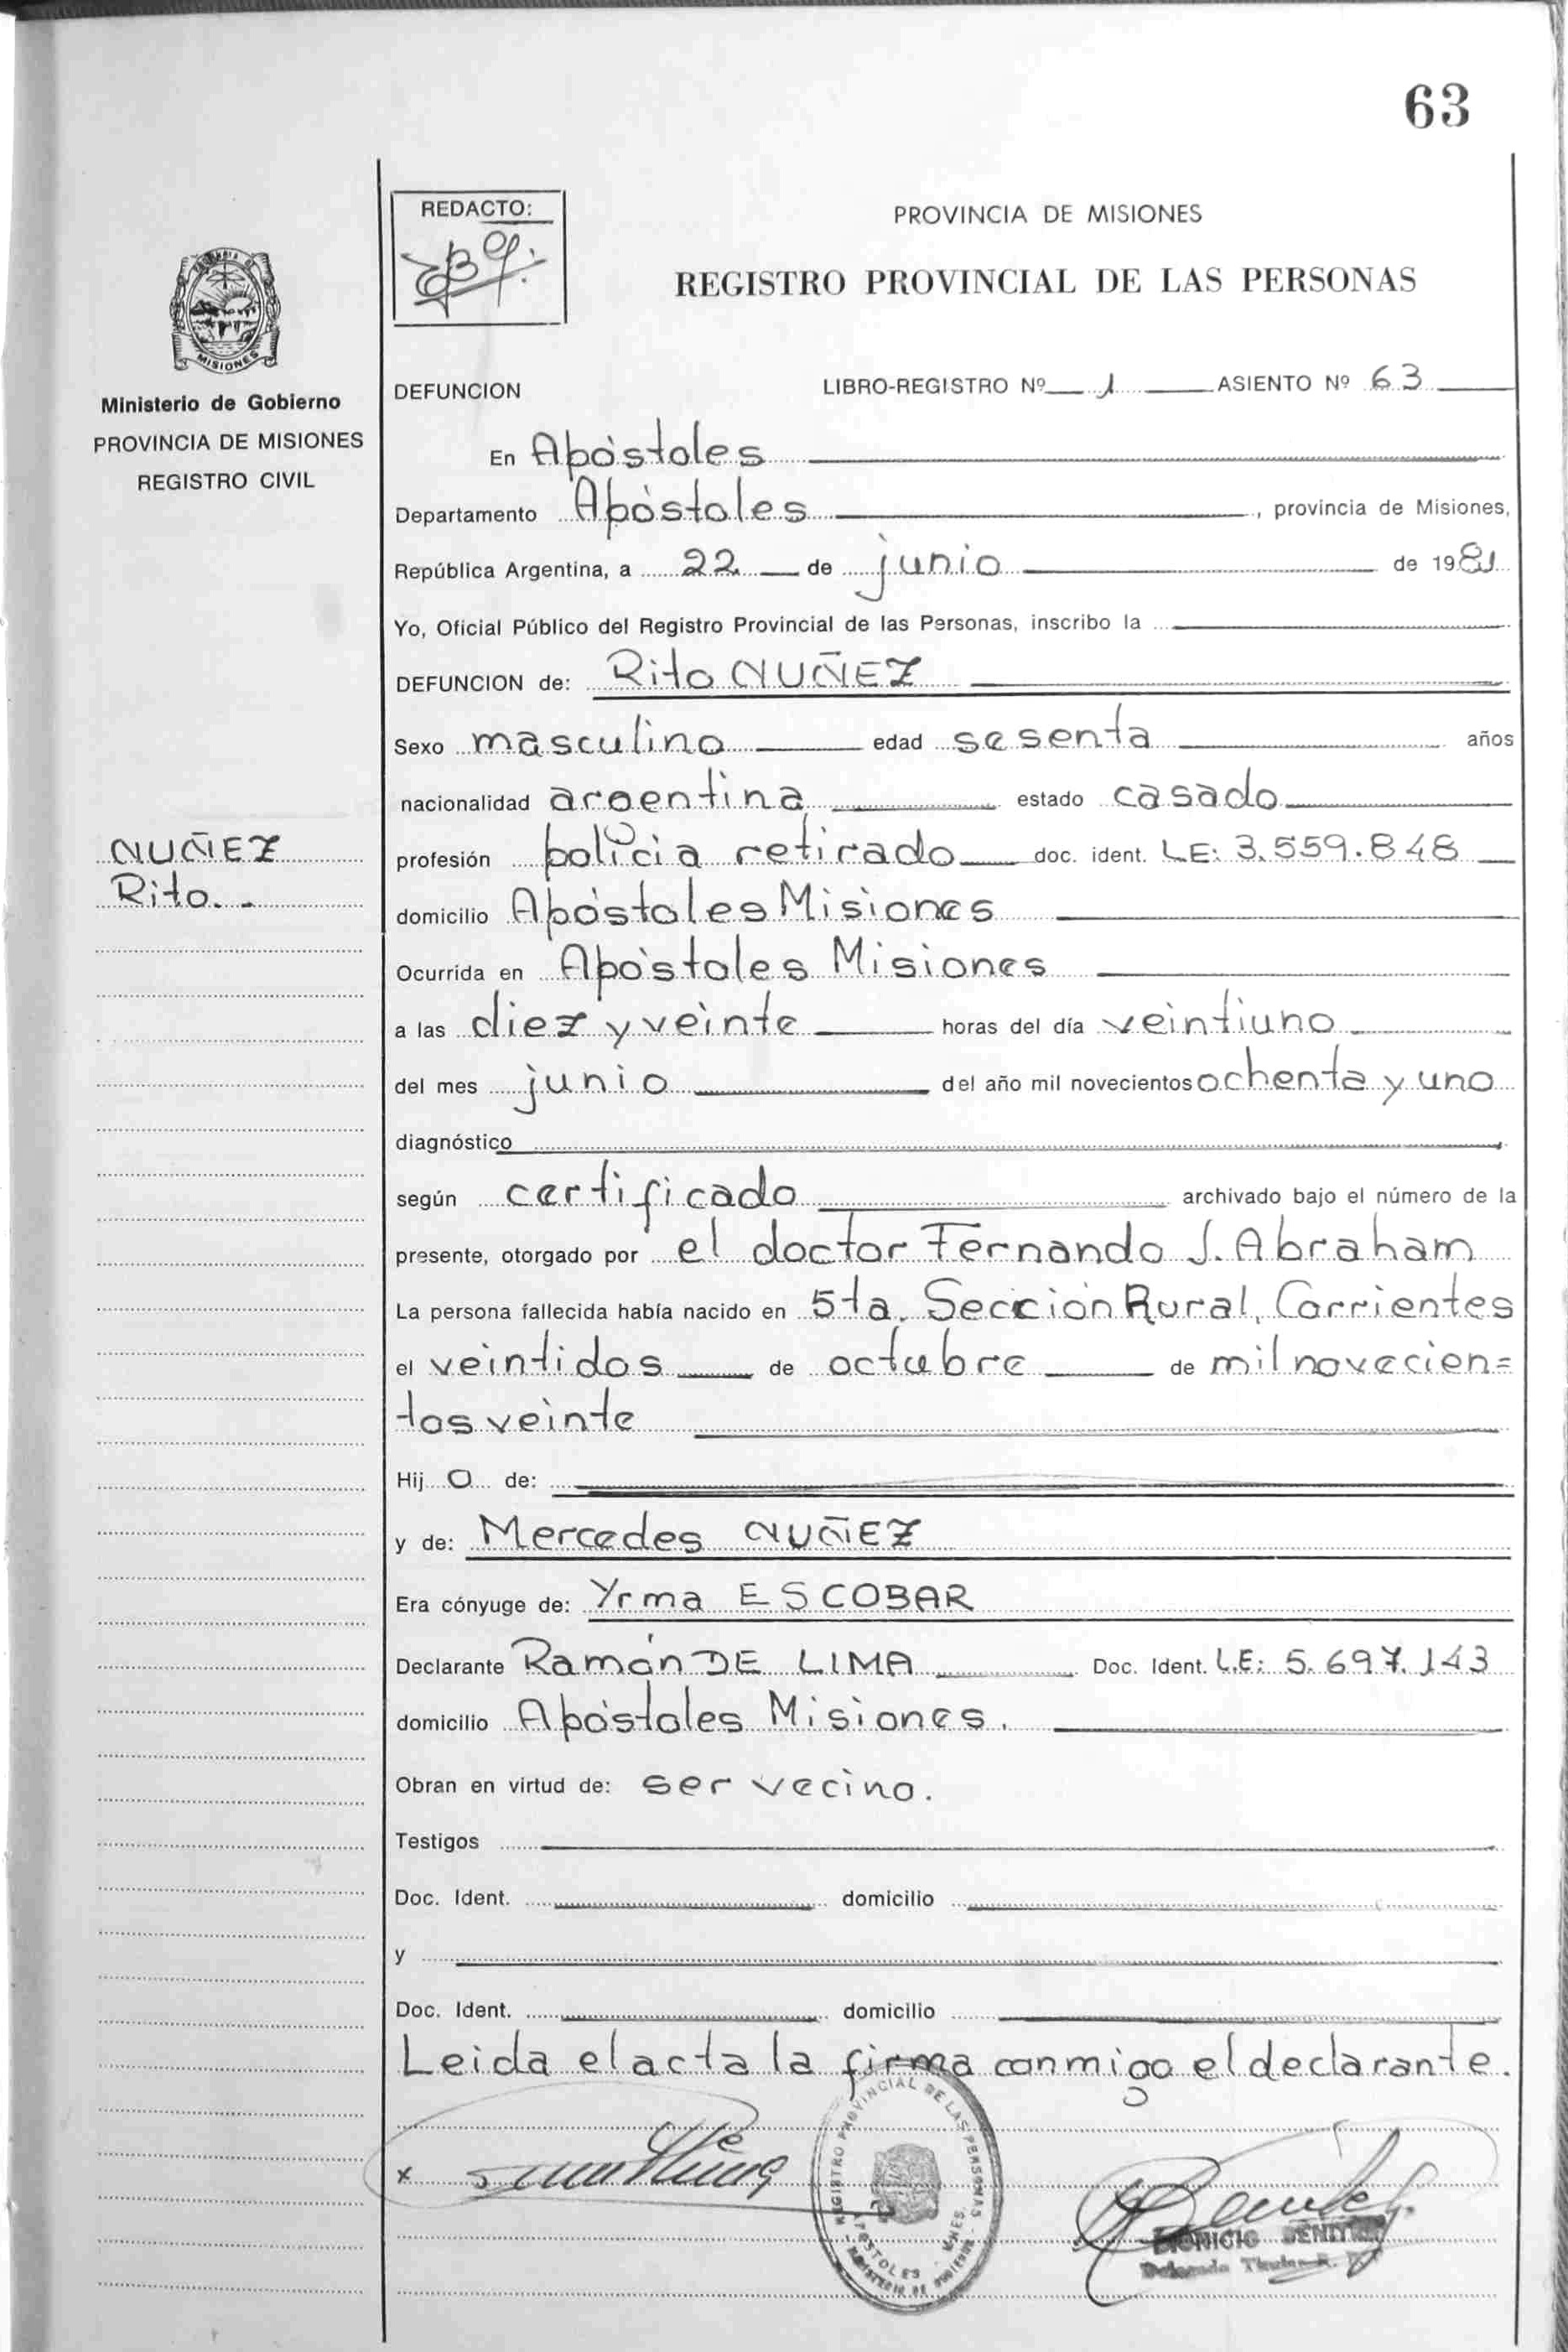 63
REDACTO:
PROVINCIA DE MISIONES
REGISTRO PROVINCIAL DE LAS PERSONAS
MISIONES
Ministerio de Gobierno
PROVINCIA DE MISIONES
REGISTRO CIVIL
DEFUNCION LIBRO-REGISTRO Nº 1 ASIENTO Nº 63
En Apóstoles
Departamento Apóstoles, provincia de Misiones,
República Argentina, a 22 de junio de 1981
Yo, Oficial Público del Registro Provincial de las Personas, inscribo la
DEFUNCION de: Rito NUÑEZ
Sexo masculino edad sesenta años
nacionalidad argentina estado casado
NUÑEZ
Rito.-
profesión policia retirado doc. ident. LE: 3.559.848
domicilio Apóstoles Misiones
Ocurrida en Apóstoles Misiones
a las diez y veinte horas del día veintiuno
del mes junio del año mil novecientos ochenta y uno
diagnóstico
según certificado archivado bajo el número de la
presente, otorgado por el doctor Fernando J. Abraham
La persona fallecida había nacido en 5ta. Sección Rural, Corrientes
el veintidos de octubre de mil novecien=
tos veinte
Hijo de:
y de: Mercedes NUÑEZ
Era cónyuge de: Yrma ESCOBAR
Declarante Ramón DE LIMA Doc. Ident. L.E: 5.697.143
domicilio Apóstoles Misiones.
Obran en virtud de: ser vecino.
Testigos
Doc. Ident. domicilio
y
Doc. Ident. domicilio
Leida el acta la firma conmigo el declarante.
x
REGISTRO PROVINCIAL DE LAS PERSONAS
APOSTOLES - MNES.
MINISTERIO DE GOBIERNO
Delegado Titular R.